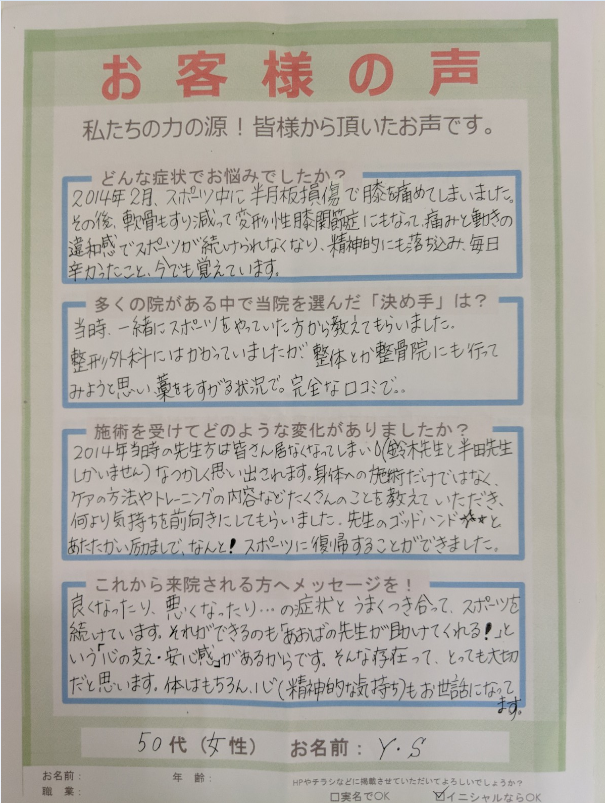 お客様の声
私たちの力の源！皆様から頂いたお声です。
どんな症状でお悩みでしたか？
2014年2月、スポーツ中に半月板損傷で膝を痛めてしまいました。
その後、軟骨もすり減って変形性膝関節症にもなって、痛みと動きの
違和感でスポーツが続けられなくなり、精神的にも落ち込み、毎日
辛かったこと、今でも覚えています。
多くの院がある中で当院を選んだ「決め手」は？
当時、一緒にスポーツをやっていた方から教えてもらいました。
整形外科にはかかっていましたが、整体とか整骨院にも行って
みようと思い藁をもすがる状況で。完全な口コミで。。
施術を受けてどのような変化がありましたか？
2014年当時の先生方は皆さん居なくなってしまい(鈴木先生と半田先生
しかいません)なつかしく思い出されます。身体への施術だけではなく、
ケアの方法やトレーニングの内容などたくさんのことを教えていただき、
何より気持ちを前向きにしてもらいました。先生のゴッドハンド☆☆と
あたたかい励ましで、なんと！スポーツに復帰することができました。
これから来院される方へメッセージを！
良くなったり、悪くなったり…の症状とうまくつき合って、スポーツを
続けています。それができるのも「あおばの先生が助けてくれる！」と
いう「心の支え・安心感」があるからです。そんな存在って、とっても大切
だと思います。体はもちろん、心(精神的な気持ち)もお世話になって
ます。
50代（女性） お名前：Y・S
お名前： 年齢： HPやチラシなどに掲載させていただいてよろしいでしょうか？
職業： □実名でOK ☑イニシャルならOK